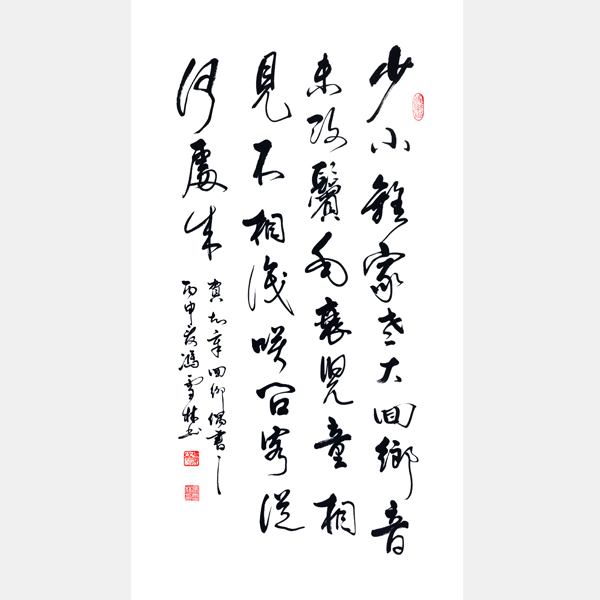 少小離家老大回鄉音
未改鬢毛衰兒童相
見不相識咲問客從
何處來
賀知章回鄉偶書一
丙申馮雪林書